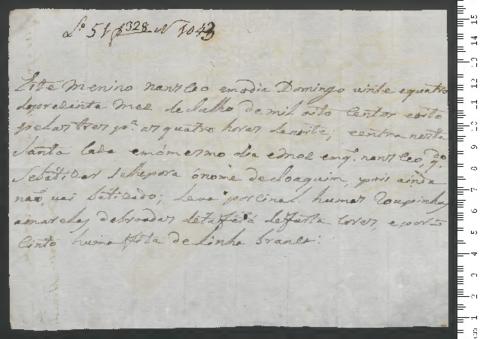 Lº 51 f 328 N 1043
Este Menino nanceo em o dia Domingo vinte e quatro
do prezente Mes de Julho de mil oito centos e oito
pelas tres pª as quatro horas da noite, e entra nesta
Santa Caza em o mesmo dia e
Se batizar se lhe pora o nome de Joaquim, pois ainda
não vai batizado; leva por sinal humas roupinhas
amarelas debroadas de tafetá de furta cores, e por
Cinto huma fita de Linha branca: